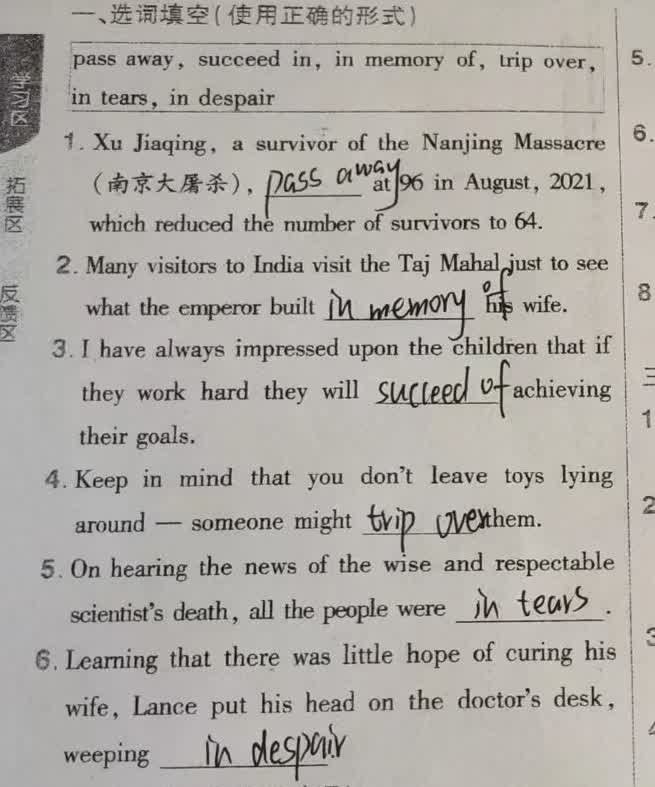 一、选词填空(使用正确的形式)
pass away, succeed in, in memory of, trip over,
in tears, in despair
1. Xu Jiaqing, a survivor of the Nanjing Massacre
(南京大屠杀), pass away at 96 in August, 2021,
which reduced the number of survivors to 64.
2. Many visitors to India visit the Taj Mahal just to see
what the emperor built in memory of his wife.
3. I have always impressed upon the children that if
they work hard they will succeed of achieving
their goals.
4. Keep in mind that you don't leave toys lying
around — someone might trip over them.
5. On hearing the news of the wise and respectable
scientist's death, all the people were in tears.
6. Learning that there was little hope of curing his
wife, Lance put his head on the doctor's desk,
weeping in despair
学习区
拓展区
反馈区
5.
6.
7.
8
三
1
2
3